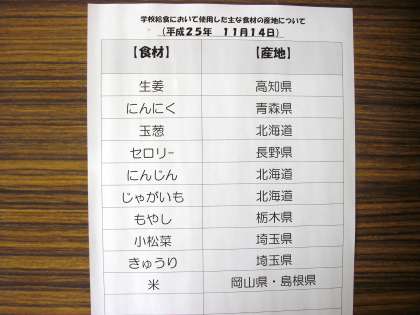 学校給食において使用した主な食材の産地について
（平成２５年　１１月１４日）
【食材】 【産地】
生姜 高知県
にんにく 青森県
玉葱 北海道
セロリー 長野県
にんじん 北海道
じゃがいも 北海道
もやし 栃木県
小松菜 埼玉県
きゅうり 埼玉県
米 岡山県・島根県